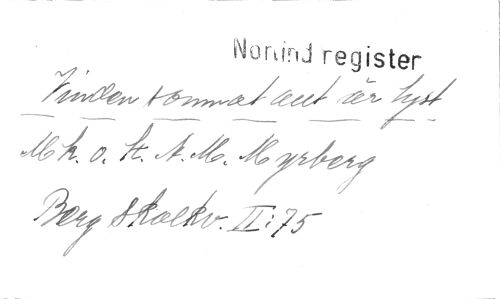 Norlind register
Vinden tommat allt är tyst
Mk. o. st. A. M. Myrberg
Berg Skolkv. II:75